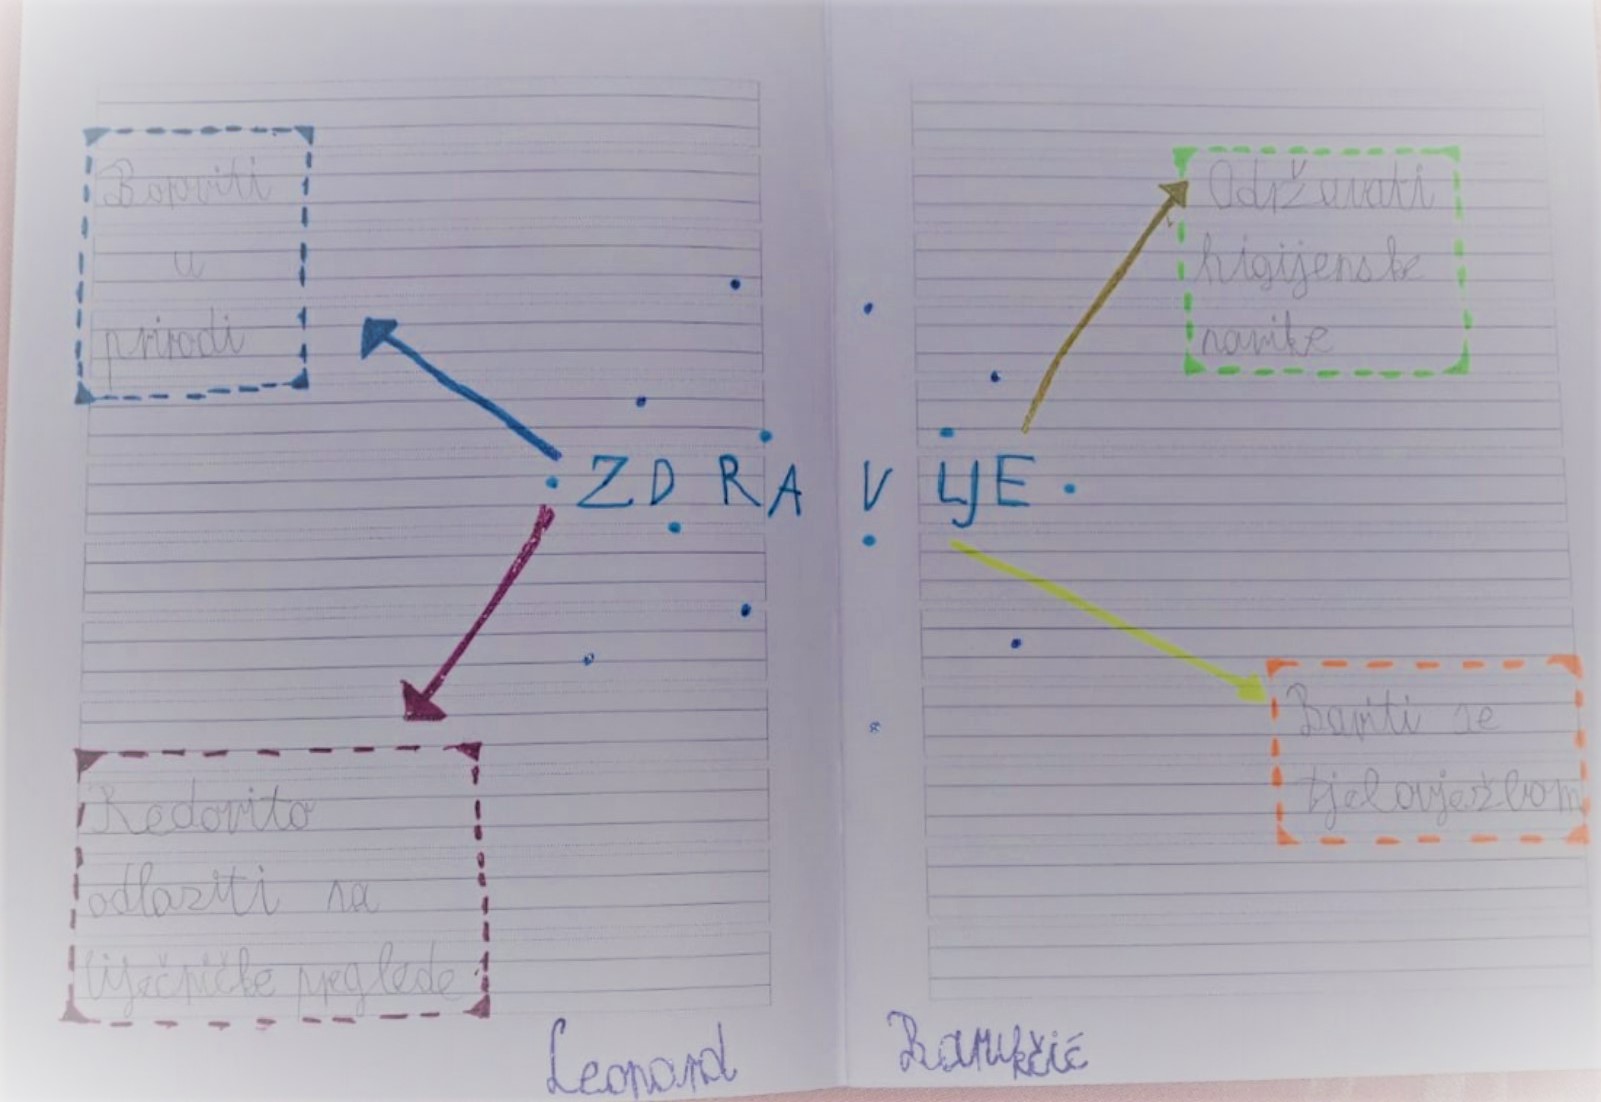 Boraviti
u
prirodi
Održavati
higijenske
navike
ZDRAVLJE
Redovito
odlaziti na
liječničke preglede
Baviti se
tjelovježbom
Leonard